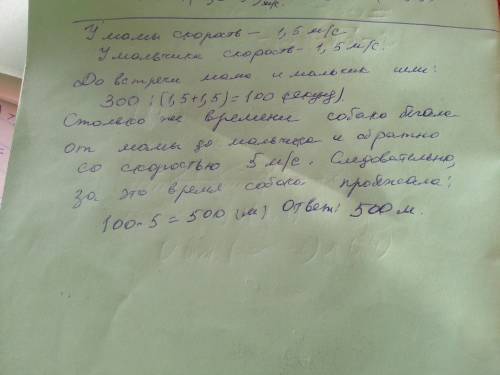 м/с.
У мамы скорость – 1,5 м/с
У мальчика скорость – 1,5 м/с.
До встречи мама и мальчик шли:
300 : (1,5+1,5) = 100 (секунд).
Столько же времени собака бегала
от мамы до мальчика и обратно
со скоростью 5 м/с. Следовательно,
за это время собака пробежала:
100 · 5 = 500 (м) Ответ: 500 м.